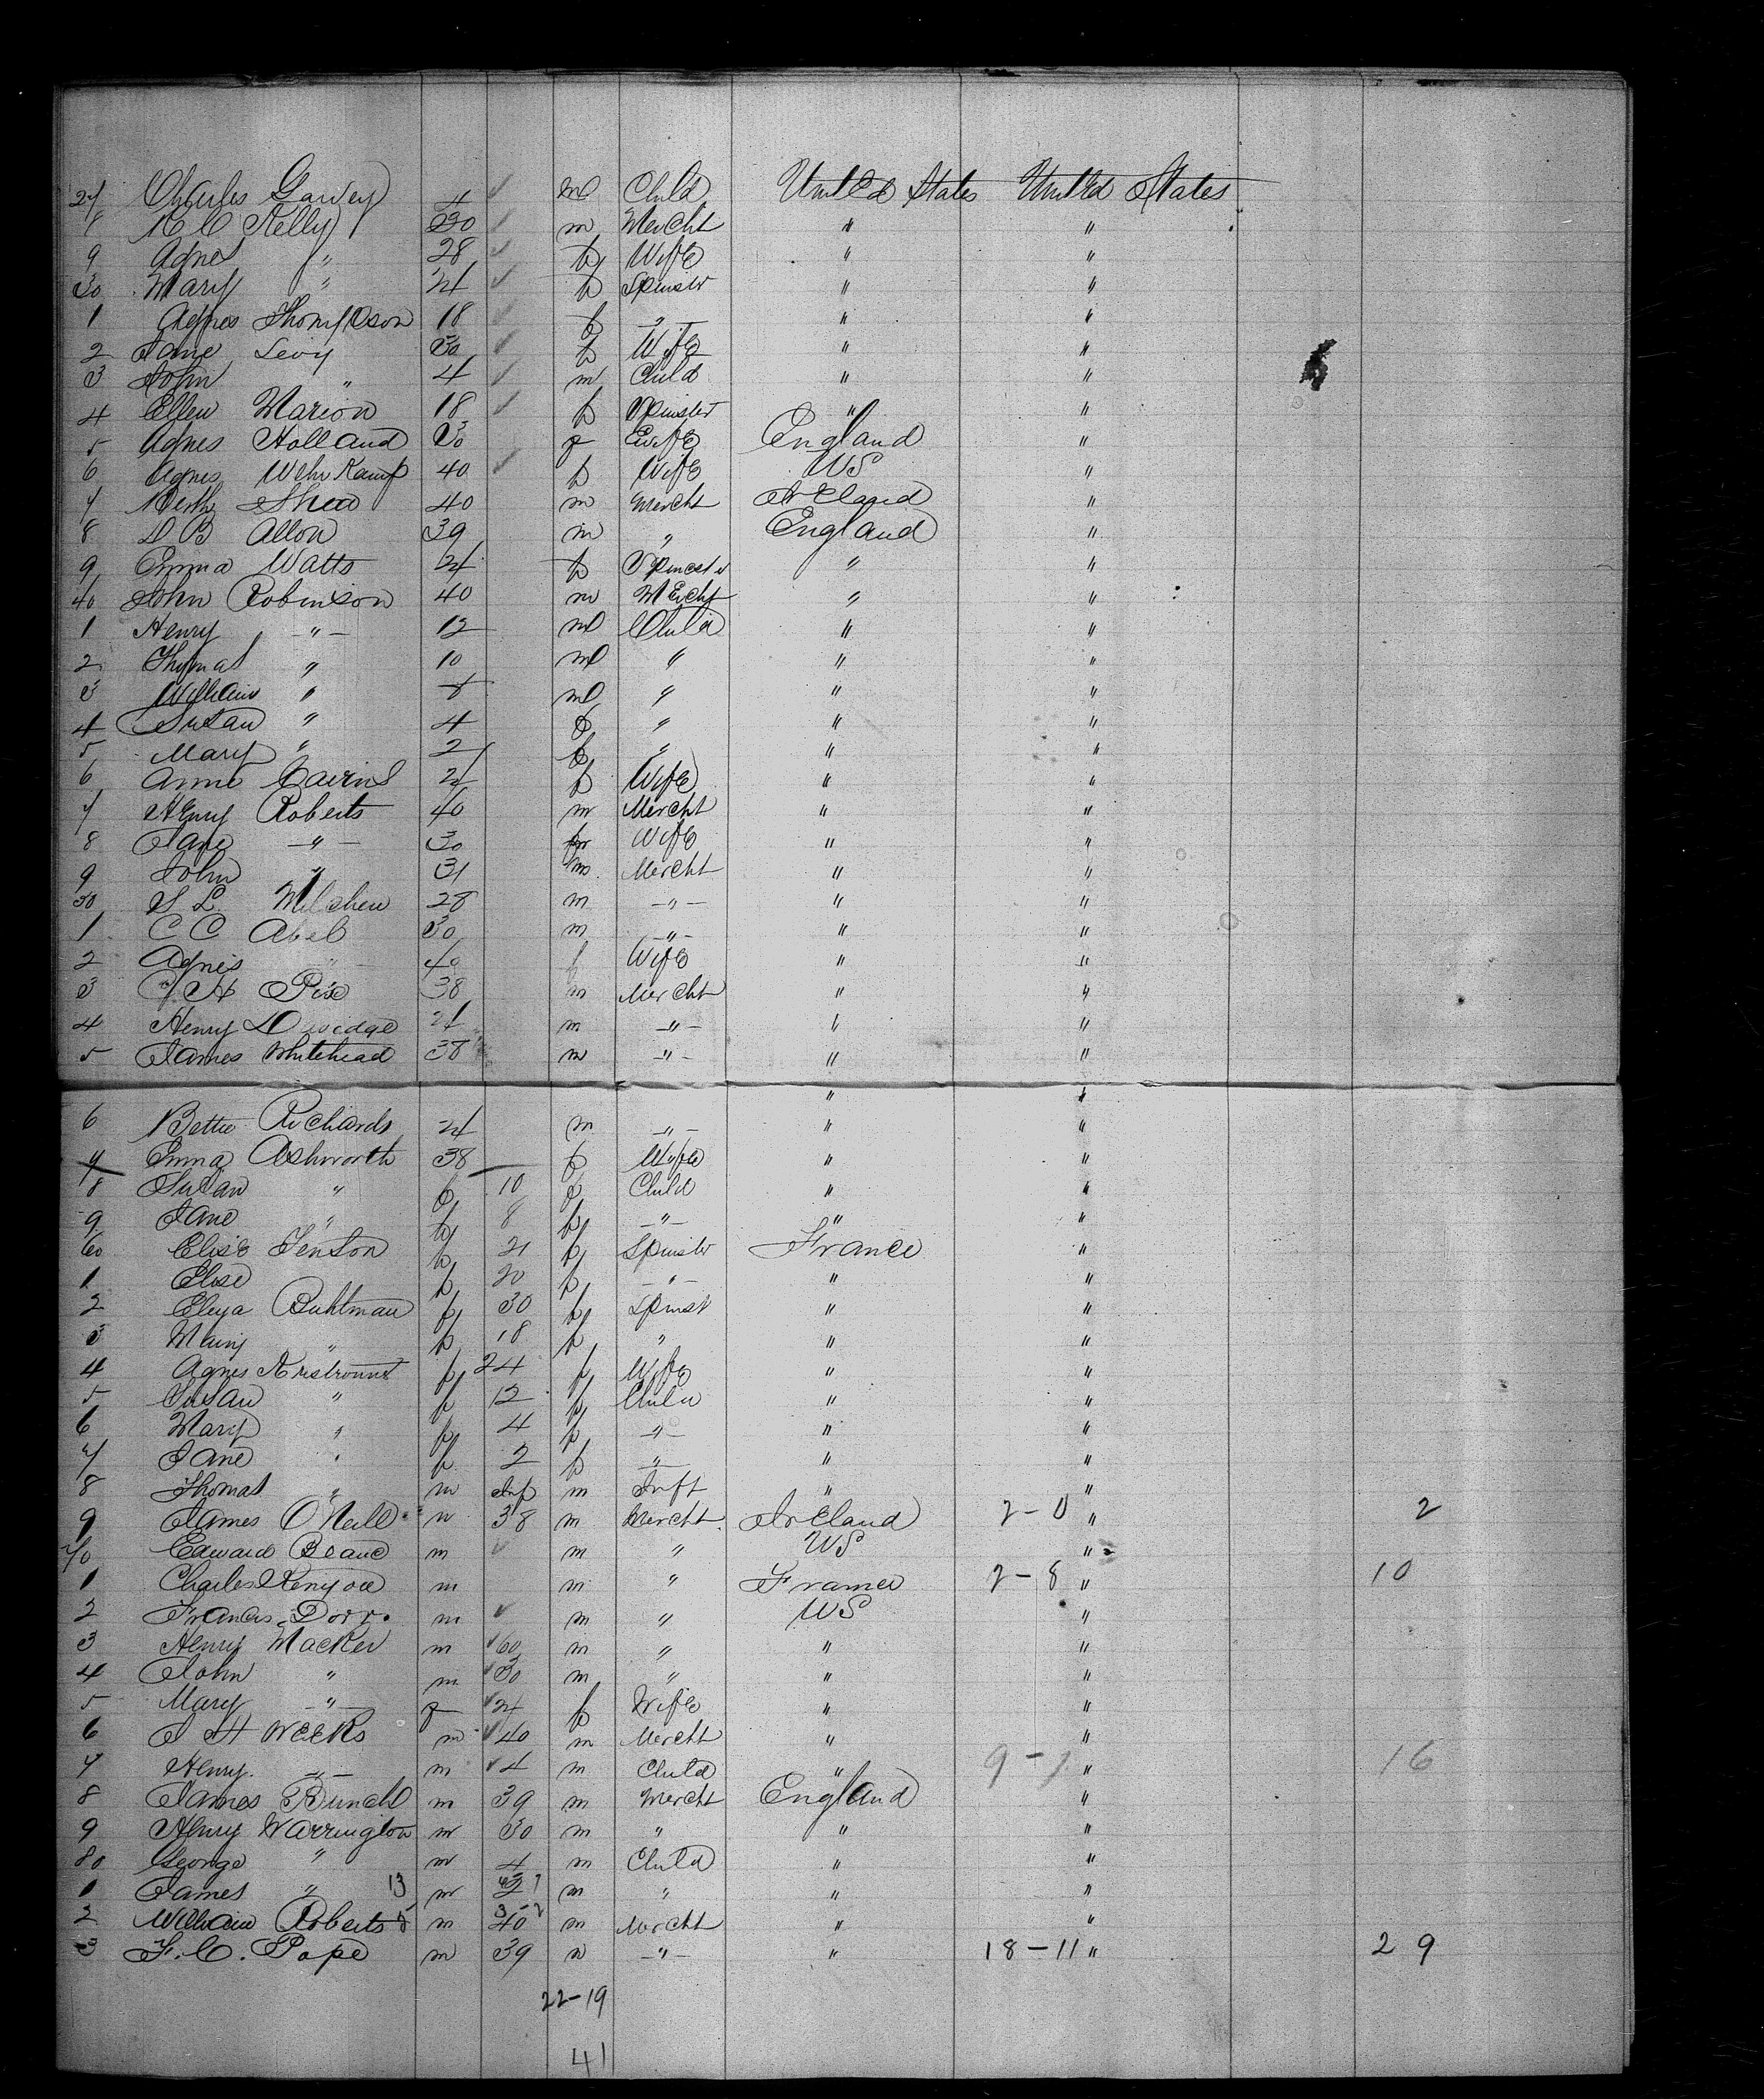 27 Charles Garvey 4 ✓ m Child United States United States
8 Kelly 30 ✓ m Mercht " "
9 Agnes " 28 ✓ f Wife " "
30 Mary " 21 ✓ f Spinster " "
1 Agnes Thompson 18 ✓ f " " "
2 Jane Levy 30 ✓ f Wife " "
3 John " 4 ✓ m Child " "
4 Ellen Marion 18 ✓ f Spinster " "
5 Agnes Holland 30 f Wife England "
6 Agnes Wehr Kamp 40 ✓ f Wife US "
7 Shea 40 m Mercht Ireland "
8 D B Allon 39 m " England "
9 Emma Watts 21 f Spinster " "
40 John Robinson 40 m Mercht " "
1 Henry -"- 12 m Child " "
2 Thomas " 10 m " " "
3 William " 8 m " " "
4 Susan " 4 f " " "
5 Mary " 2 f " " "
6 Anne Cairns 21 f Wife " "
7 Henry Roberts 40 m Mercht " "
8 Jane -"- 30 f Wife " "
9 John " 31 m Mercht " "
50 S L 28 m -"- " "
1 C C Abel 30 m -"- " "
2 Agnes 40 f Wife " "
3 H 38 m Mercht " "
4 Henry 21 m -"- " "
5 James Whitehead 38 m -"- " "
" "
6 Bettie Richards 21 m -"- " "
7 Emma Ashworth 38 f Wife " "
8 Susan " f 10 f Child " "
9 Jane " f 8 f -"- " "
60 Elise Fenton f 21 f Spinster France "
1 Elise f 20 f -"- " "
2 Buhlman f 30 f Spinst " "
3 Mary " f 18 f " " "
4 Agnes f 24 f Wife " "
5 Susan " f 12 f Child " "
6 Mary " f 4 f -"- " "
7 Jane " f 2 f -"- " "
8 Thomas " m Inf m Inft " "
9 James O'Neill m 38 m Mercht Ireland 2-0 " 2
70 Edward m ✓ m " US "
1 Charles Kenyon m m " France 2-8 " 10
2 Francis Dorr. m ✓ m " US "
3 Henry Macker m ✓ 60 m " " "
4 John " m ✓ 30 m " " "
5 Mary -"- f ✓ 21 f Wife " "
6 J H Weeks m ✓ 40 m Mercht " "
7 Henry. -"- m ✓ 4 m Child " 9-7 " 16
8 James Bunell m 39 m Mercht England "
9 Henry Warrington m 30 m " " "
80 George " m 4 m Child " "
1 James " 13 m 2 m " " "
2 William Roberts m 40 m Mercht " "
3 F. C. Pope m 39 m -"- " 18-11 " 29
22-19
41